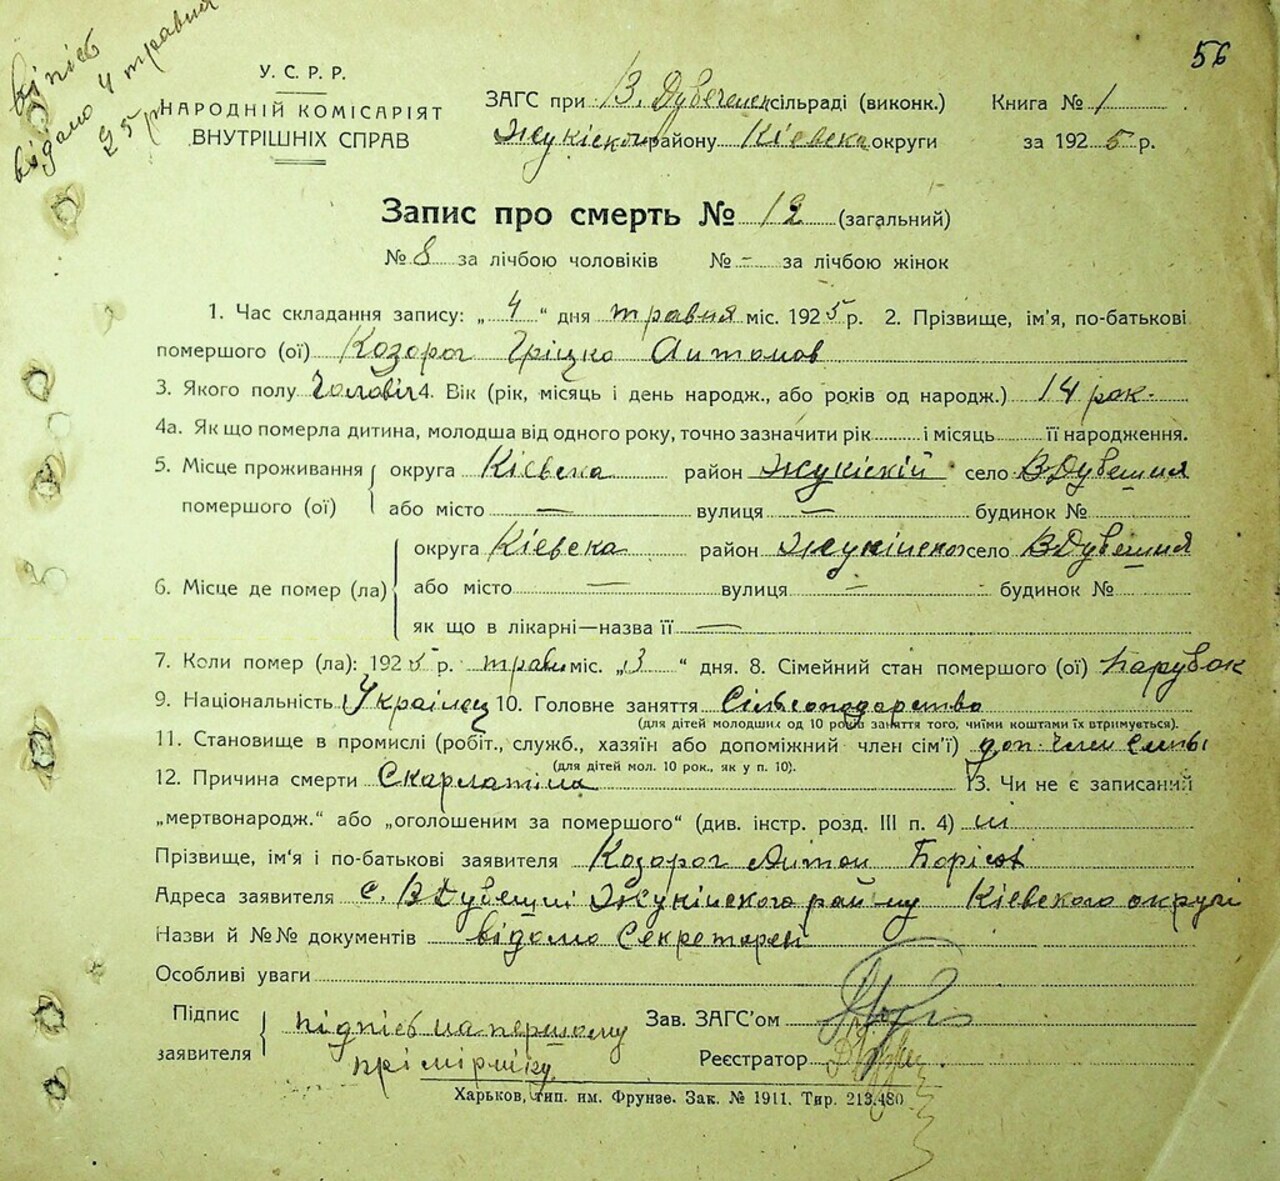 56
випісь
відано 4 травня
25 р
У. С. Р. Р.
НАРОДНІЙ КОМІСАРІЯТ
ВНУТРІШНІХ СПРАВ
ЗАГС при В. Дубеченск сільраді (виконк.) Книга № 1
Жукіской району Кіевска округи за 1925 р.
Запис про смерть № 12 (загальний)
№ 8 за лічбою чоловіків № - за лічбою жінок
1. Час складання запису: „4“ дня травня міс. 1925 р. 2. Прізвище, ім'я, по-батькові
помершого (ої) Козорог Гріцко Антонов
3. Якого полу Чоловіч 4. Вік (рік, місяць і день народж., або років од народж.) 14 рок.
4а. Як що померла дитина, молодша від одного року, точно зазначити рік і місяць її народження.
5. Місце проживання помершого (ої) округа Кіевска район Жукіскій село ВДубешня
або місто — вулиця — будинок №
6. Місце де помер (ла) округа Кіевска район Жукінско село ВДубешня
або місто — вулиця — будинок №
як що в лікарні—назва її —
7. Коли помер (ла): 1925 р. травн міс. „3“ дня. 8. Сімейний стан помершого (ої) Парубок
9. Національність Українец 10. Головне заняття Сільсоподарство
(для дітей молодших од 10 років заняття того, чиїми коштами їх втримується).
11. Становище в промислі (робіт., служб., хазяїн або допоміжний член сім'ї) доп. член семьі
(для дітей мол. 10 рок., як у п. 10).
12. Причина смерти Скарлатіна 13. Чи не є записаний
„мертвонародж.“ або „оголошеним за помершого“ (див. інстр. розд. III п. 4) ні
Прізвище, ім'я і по-батькові заявителя Козорог Антон Борісов
Адреса заявителя с. ВДубешні Жукінского району Кіевского округі
Назви й №№ документів відомо Секретарей
Особливі уваги
Підпис заявителя підпісь на першому
прімірніку
Зав. ЗАГС'ом
Реєстратор
Харьков, тип. им. Фрунзе. Зак. № 1911. Тир. 213.480